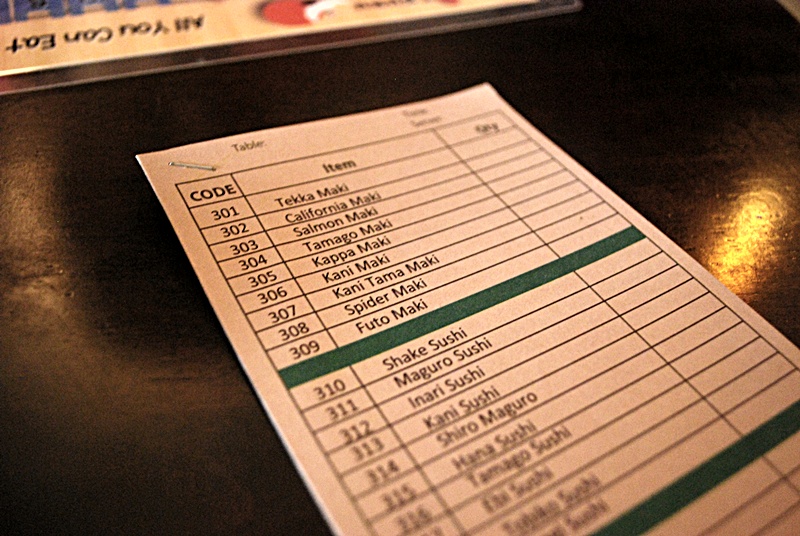 All You Can Eat
Table:
CODE Item Qty
301 Tekka Maki
302 California Maki
303 Salmon Maki
304 Tamago Maki
305 Kappa Maki
306 Kani Maki
307 Kani Tama Maki
308 Spider Maki
309 Futo Maki
310 Shake Sushi
311 Maguro Sushi
312 Inari Sushi
313 Kani Sushi
314 Shiro Maguro
315 Hana Sushi
316 Tamago Sushi
Ebi Sushi
Tobiko Sushi
Sushi